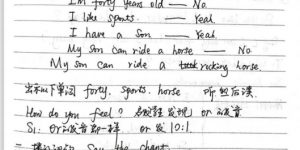 I'm forty years old — No
I like sports. — Yeah
I have a son — Yeah.
My son can ride a horse — No
My son can ride a rocking horse.
出示以下单词 forty. sports. horse 听然后读
How do you feel? 发现 or 发音
S1: or 发音都一样 or 发 /ɔ:/.
二 Say the chant